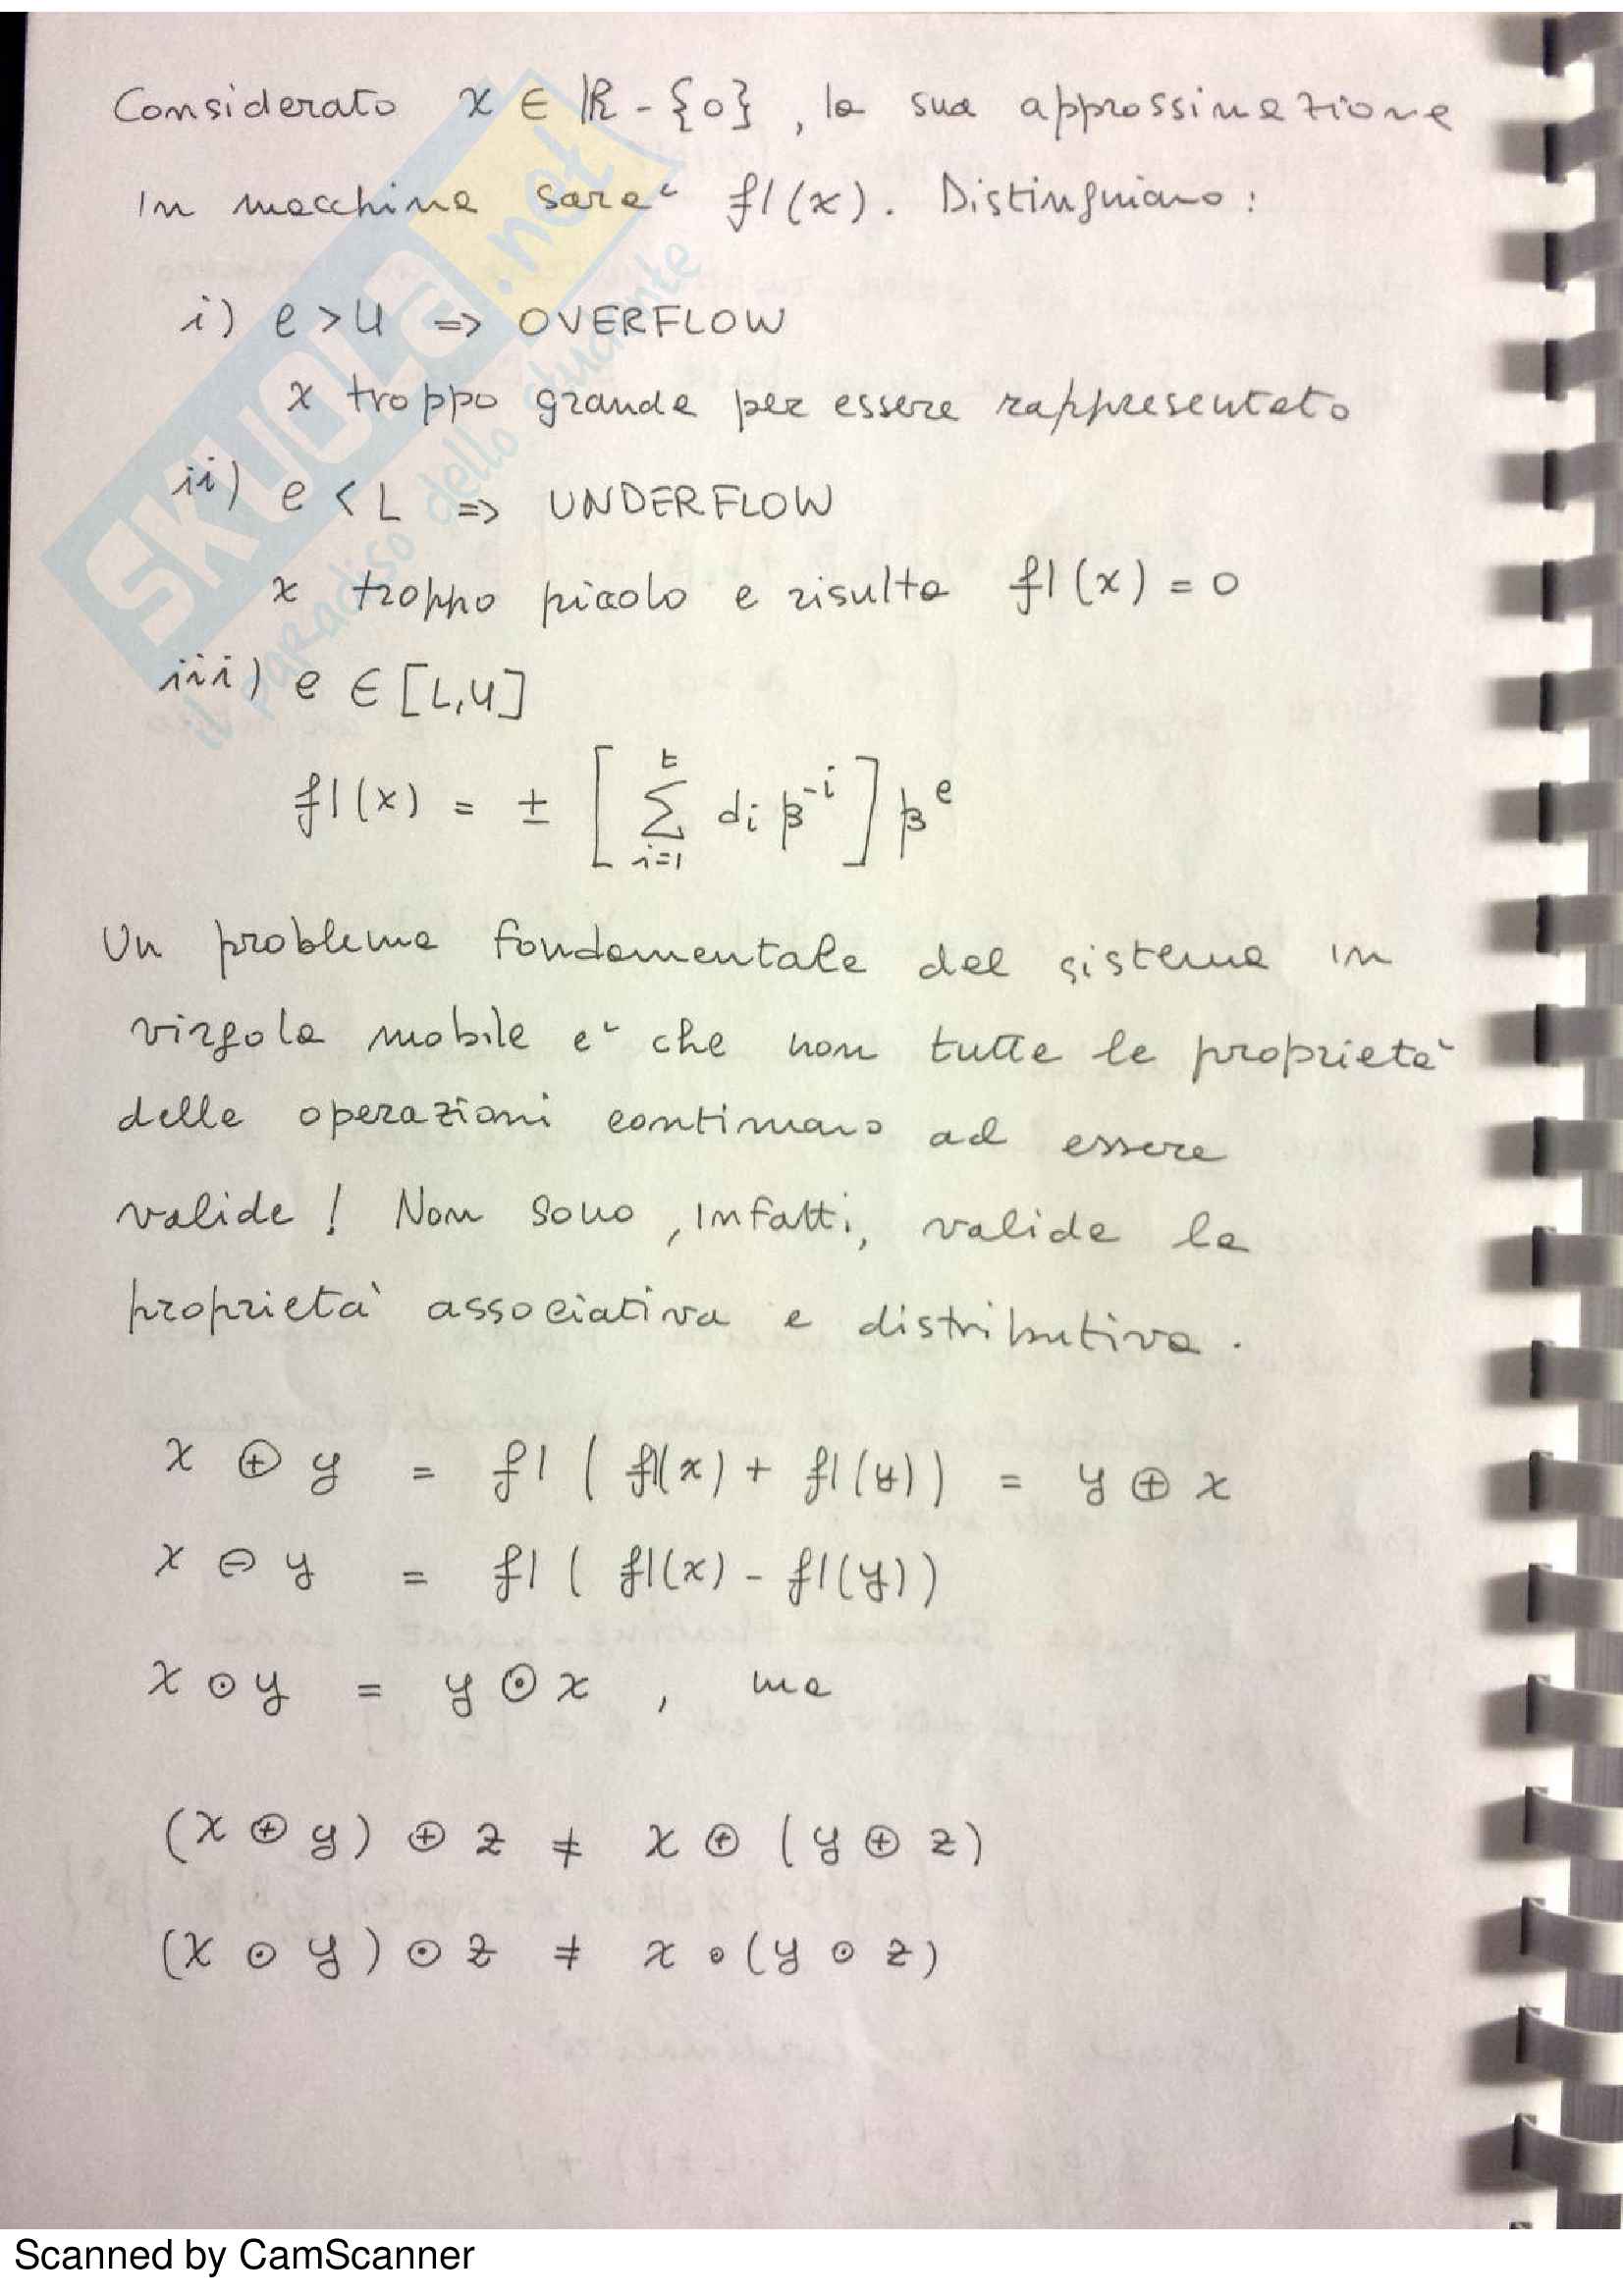 Considerato x ∈ ℝ - {0}, la sua approssimazione
in macchina sara' fl(x). Distinguiamo:
i) e > U => OVERFLOW
x troppo grande per essere rappresentato
ii) e < L => UNDERFLOW
x troppo piccolo e risulta fl(x) = 0
iii) e ∈ [L,U]
fl(x) = ± [ ∑_{i=1}^{t} d_i β^{-i} ] β^e
Un problema fondamentale del sistema in
virgola mobile e' che non tutte le proprieta'
delle operazioni continuano ad essere
valide! Non sono, infatti, valide la
proprieta' associativa e distributiva.
x ⊕ y = fl ( fl(x) + fl(y)) = y ⊕ x
x ⊖ y = fl ( fl(x) - fl(y))
x ⊙ y = y ⊙ x , ma
(x ⊕ y) ⊕ z ≠ x ⊕ (y ⊕ z)
(x ⊙ y) ⊙ z ≠ x ⊙ (y ⊙ z)
SKUOLA.net
il paradiso dello studente
Scanned by CamScanner